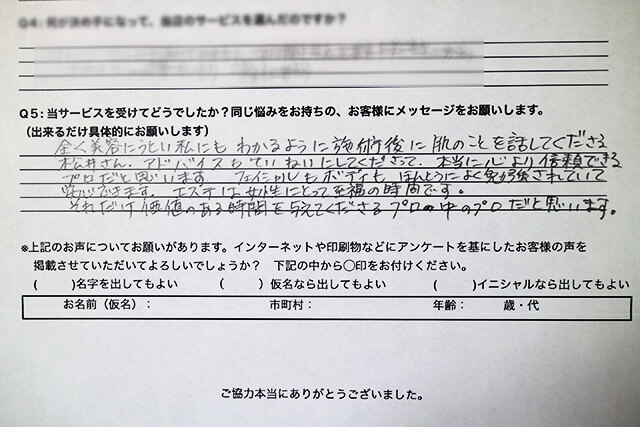 Q4：何が決め手になって、当店のサービスを選んだのですか？
Q5：当サービスを受けてどうでしたか？同じ悩みをお持ちの、お客様にメッセージをお願いします。
（出来るだけ具体的にお願いします）
全く美容にうとい私にも わかるように施術後に肌のことを話してくださる
松井さん。アドバイスもていねいにしてくださって、本当に心より信頼できる
プロだと思います。フェイシャルもボディも ほんとうによく勉強されていて
安心できます。エステは女性にとって至福の時間です。
それだけ価値のある時間を与えてくださるプロの中のプロだと思います。
※上記のお声についてお願いがあります。インターネットや印刷物などにアンケートを基にしたお客様の声を
掲載させていただいてよろしいでしょうか？　下記の中から〇印をお付けください。
（　　）名字を出してもよい　　（　　）仮名なら出してもよい　　（　　）イニシャルなら出してもよい
お名前（仮名）：　　市町村：　　年齢：　　歳・代
ご協力本当にありがとうございました。